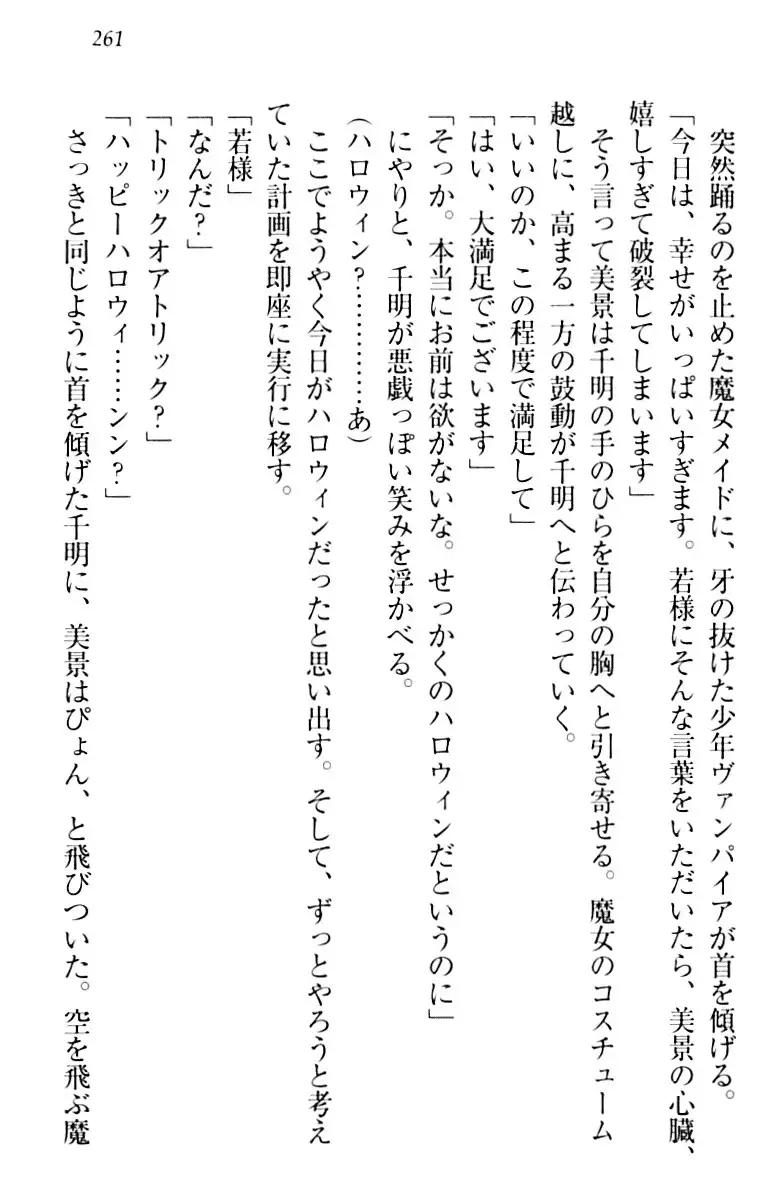 261
突然踊るのを止めた魔女メイドに、牙の抜けた少年ヴァンパイアが首を傾げる。
「今日は、幸せがいっぱいすぎます。若様にそんな言葉をいただいたら、美景の心臓、
嬉しすぎて破裂してしまいます」
そう言って美景は千明の手のひらを自分の胸へと引き寄せる。魔女のコスチューム
越しに、高まる一方の鼓動が千明へと伝わっていく。
「いいのか、この程度で満足して」
「はい、大満足でございます」
「そっか。本当にお前は欲がないな。せっかくのハロウィンだというのに」
にやりと、千明が悪戯っぽい笑みを浮かべる。
(ハロウィン？…………あ)
ここでようやく今日がハロウィンだったと思い出す。そして、ずっとやろうと考え
ていた計画を即座に実行に移す。
「若様」
「なんだ？」
「トリックオアトリック？」
「ハッピーハロウィ……ンン？」
さっきと同じように首を傾げた千明に、美景はぴょん、と飛びついた。空を飛ぶ魔